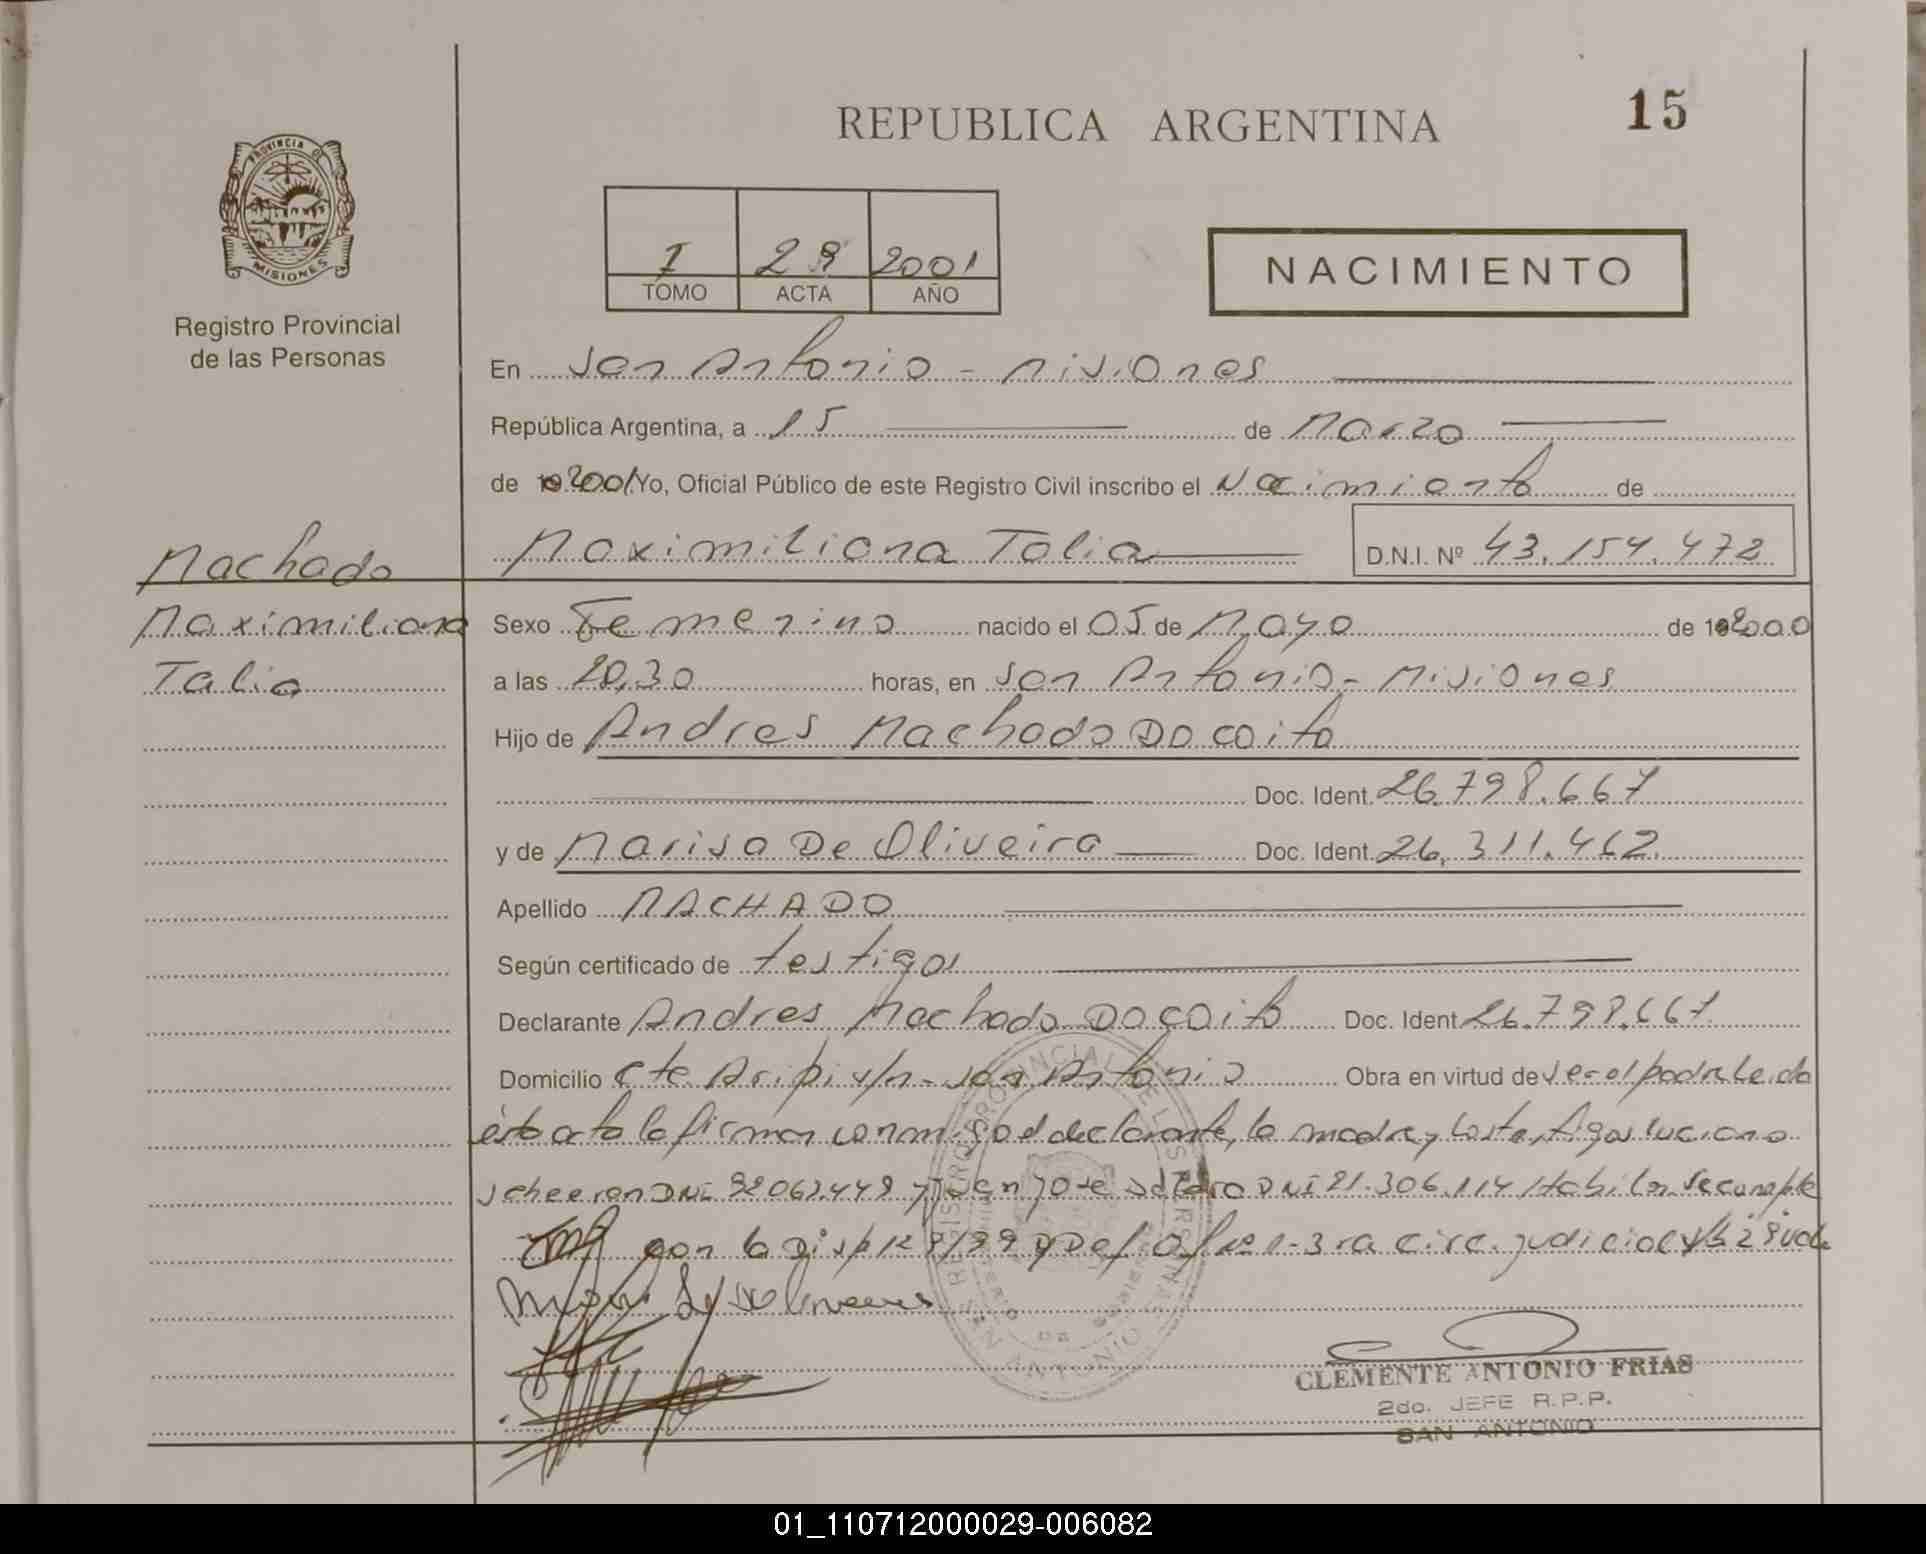 REPUBLICA ARGENTINA
15
PROVINCIA DE
MISIONES
Registro Provincial
de las Personas
1 29 2001
TOMO ACTA AÑO
NACIMIENTO
En San Antonio - Misiones
República Argentina, a 15 de Marzo
de 192001 Yo, Oficial Público de este Registro Civil inscribo el Nacimiento de
Maximiliana Talia D.N.I. Nº 43.154.472
Machado
Maximiliana
Talia
Sexo Femenino nacido el 05 de Mayo de 192000
a las 20,30 horas, en San Antonio - Misiones
Hijo de Andres Machado Do Coito
Doc. Ident. 26.798.667
y de Marisa De Oliveira Doc. Ident. 26.311.462
Apellido MACHADO
Según certificado de testigos
Declarante Andres Machado Do Coito Doc. Ident 26.798.667
Domicilio Cte Aripi s/n - San Antonio Obra en virtud de ser el padre Leida
ésta acta la firman conmigo el declarante, la madre y los testigos Luciano
Scheeren DNI 92062449 y Juan Jose DNI 21.306.114 Habil. Se cumple
con la Disp 9/99 Def. Of. Nº 1 - 3ra Circ. judicial
CLEMENTE ANTONIO FRIAS
2do. JEFE R.P.P.
SAN ANTONIO
01_110712000029-006082